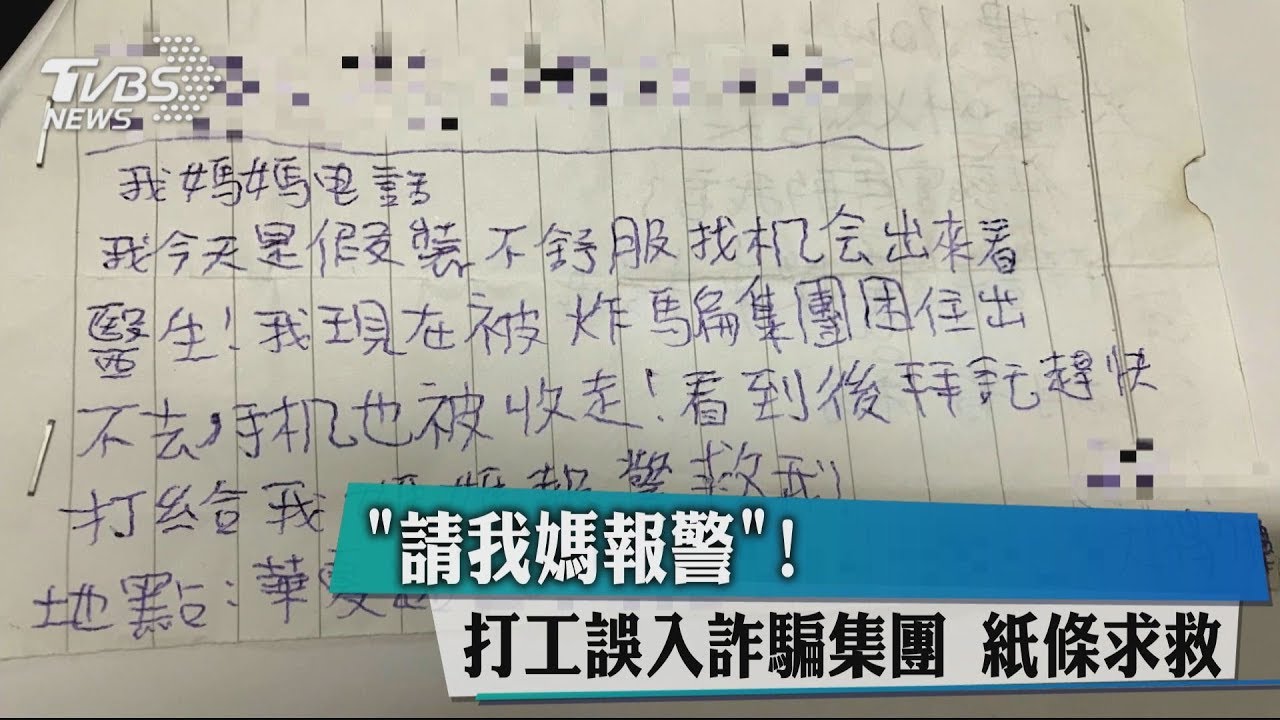 TVBS
NEWS
我媽媽电話
我今天是假裝不舒服找机会出來看
醫生!我現在被炸騙集團困住出
不去,手机也被收走!看到後拜託趕快
打給我媽媽報警救我!
地點:華夏
"請我媽報警"!
打工誤入詐騙集團 紙條求救